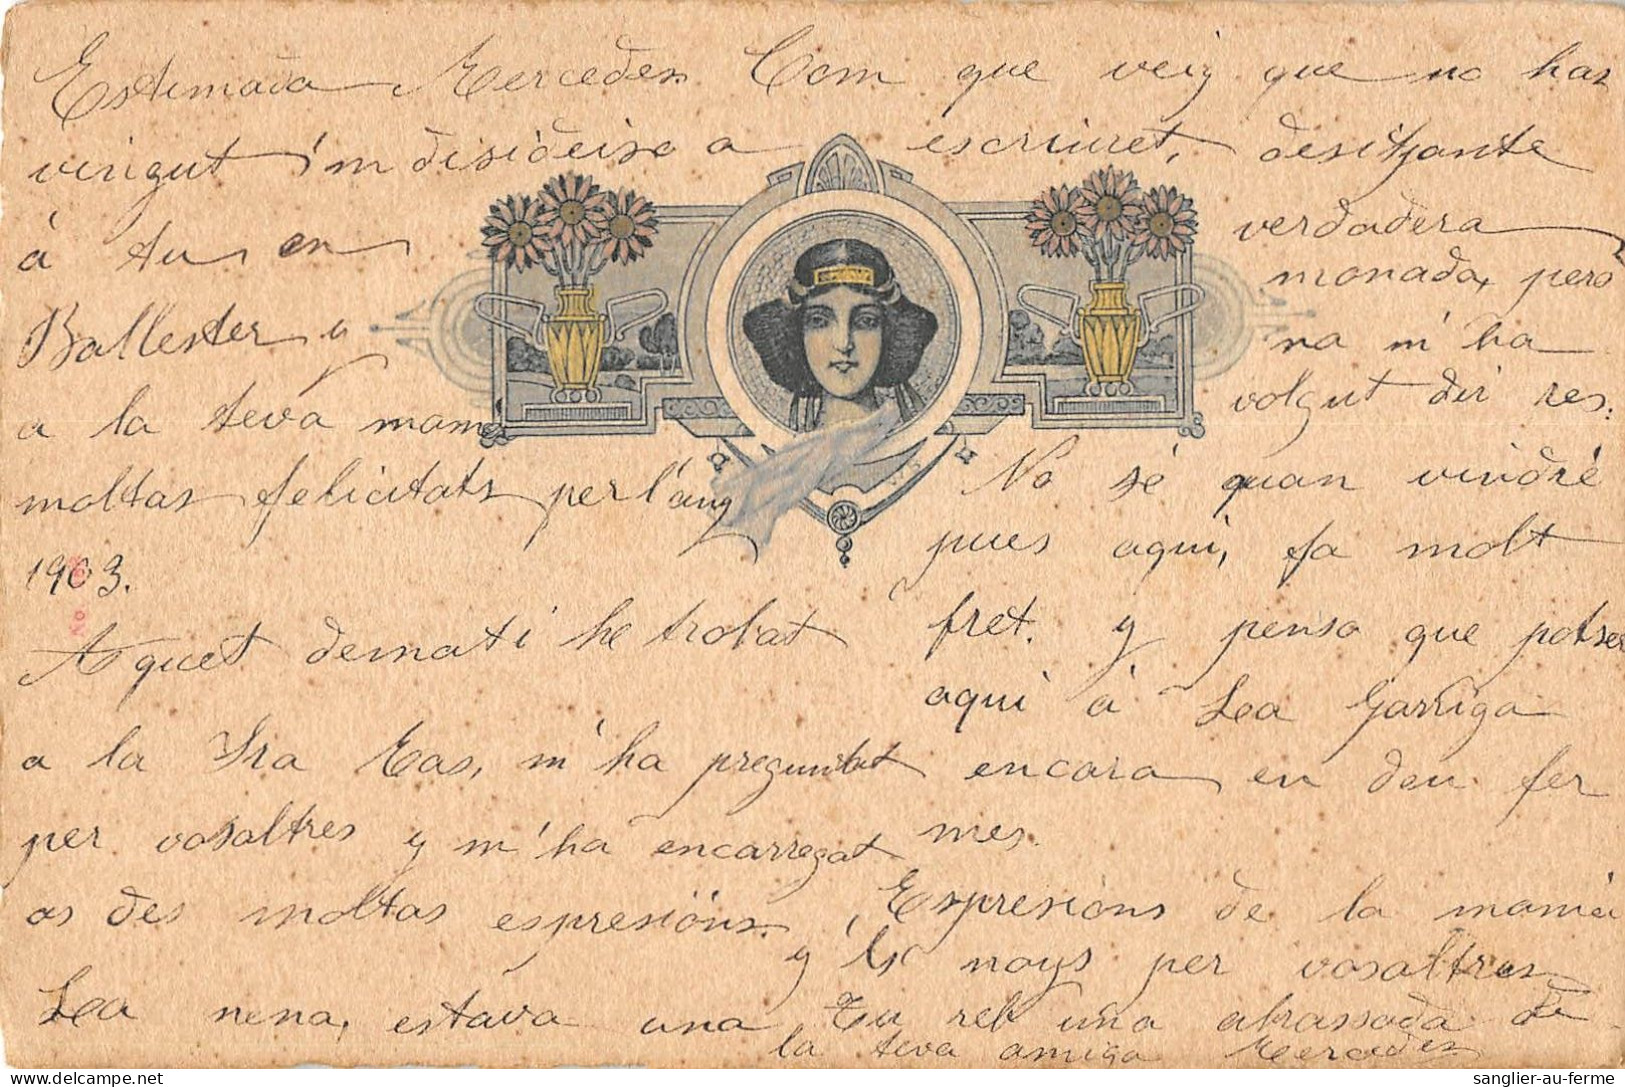 Estimada Mercedes. Com que veig que no has
vingut i'm disideixo a escriuret, desitjante
á tu en
Ballester y
a la teva mamá
moltas felicitats per l'any
1903.
Aquet dematí he trobat
a la Sra Cas, m'ha preguntat
per vosaltres y m'ha encarregat
os des moltas espresións.
Lea nena, estava una
verdadera
monada, pero
na m'ha
volgut dir res.
No sé quan vindré
pues aqui, fa molt
fret. y penso que potser
aqui á Lea Garriga
encara en deu fer
mes.
Espresions de la mamá
y 'ls noys per vosaltres
Tu reb una abrassada de
la teva amiga Mercedes
sanglier-au-ferme